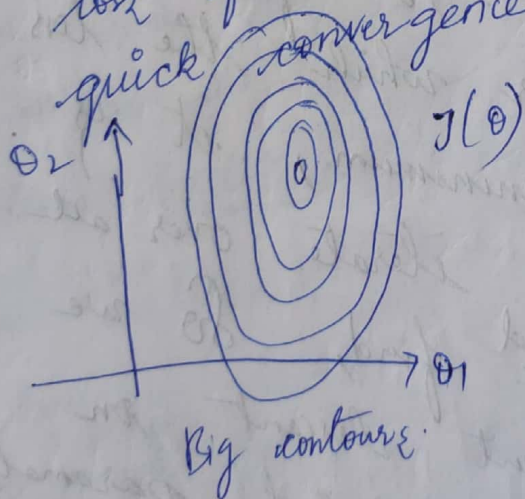 quick convergence
J(θ)
θ2
θ1
Big contours.